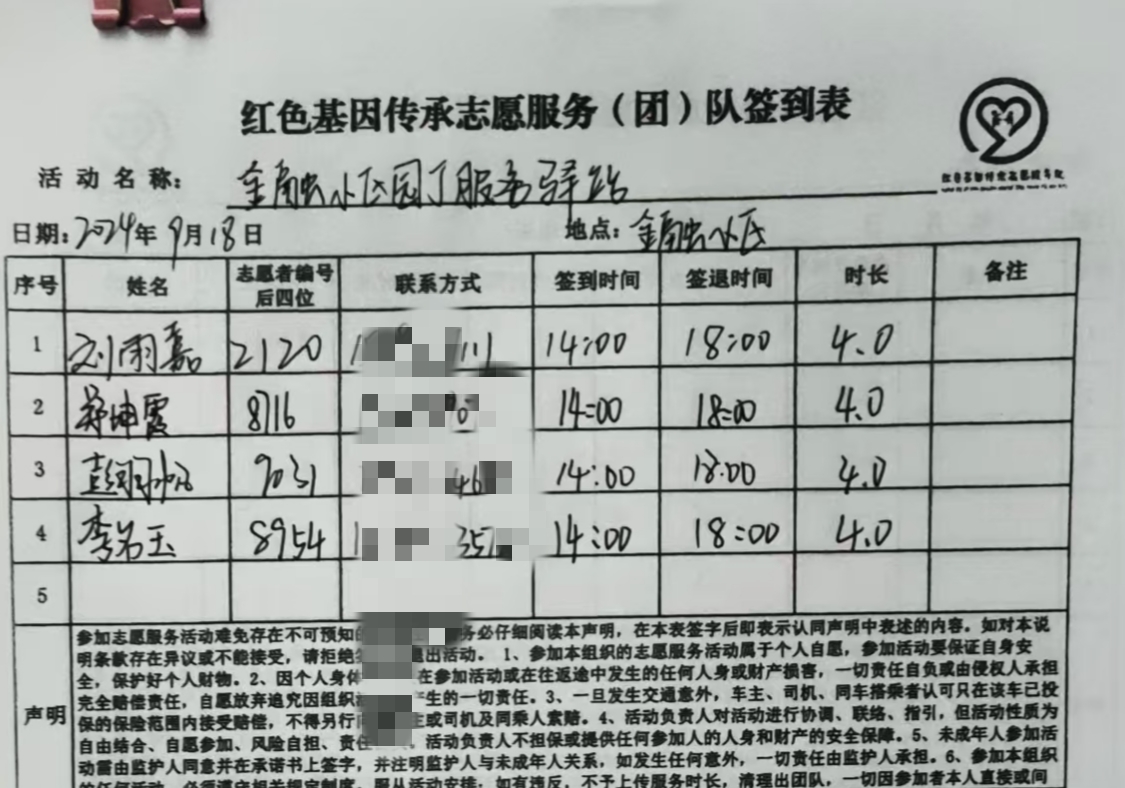 红色基因传承志愿服务（团）队签到表
活动名称：金融小区园丁服务驿站
日期：2024年9月18日 地点：金融小区
序号 姓名 志愿者编号后四位 联系方式 签到时间 签退时间 时长 备注
1 刘雨嘉 2120 14:00 18:00 4.0
2 郑坤霞 8716 14:00 18:00 4.0
3 9031 14:00 18:00 4.0
4 李若玉 8954 14:00 18:00 4.0
5
声明
参加志愿服务活动难免存在不可预知的 务必仔细阅读本声明，在本表签字后即表示认同声明中表述的内容。如对本说
明条款存在异议或不能接受，请拒绝 退出活动。 1、参加本组织的志愿服务活动属于个人自愿，参加活动要保证自身安
全，保护好个人财物。2、因个人身体 在参加活动或在往返途中发生的任何人身或财产损害，一切责任自负或由侵权人承担
完全赔偿责任，自愿放弃追究因组织 产生的一切责任。3、一旦发生交通意外，车主、司机、同车搭乘者认可只在该车已投
保的保险范围内接受赔偿，不得另行 主或司机及同乘人索赔。4、活动负责人对活动进行协调、联络、指引，但活动性质为
自由结合、自愿参加、风险自担、责任 。活动负责人不担保或提供任何参加人的人身和财产的安全保障。5、未成年人参加活
动需由监护人同意并在承诺书上签字，并注明监护人与未成年人关系，如发生任何意外，一切责任由监护人承担。6、参加本组织
的任何活动，必须遵守相关规定制度，服从活动安排，如有违反，不予上传服务时长，清理出团队，一切因参加者本人直接或间